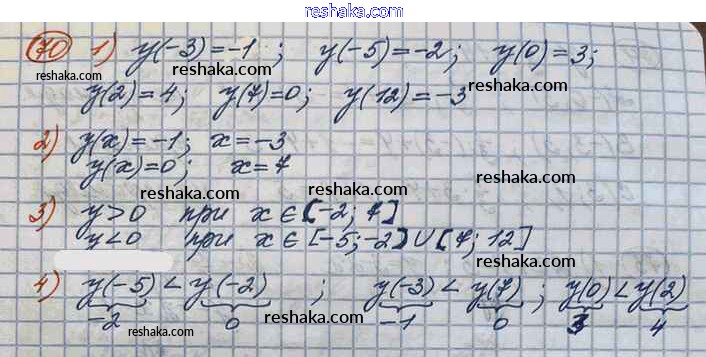 reshaka.com
70 1) y(-3)=-1; y(-5)=-2; y(0)=3;
reshaka.com reshaka.com reshaka.com
y(2)=4; y(7)=0; y(12)=-3
reshaka.com
2) y(x)=-1; x=-3
y(x)=0; x=7
reshaka.com reshaka.com
3) y>0 при x∈[-2; 7]
reshaka.com
y<0 при x∈[-5;-2)∪[7; 12]
reshaka.com
4) y(-5)<y(-2); y(-3)<y(7); y(0)<y(2)
reshaka.com
-2 0 -1 0 3 4
reshaka.com reshaka.com
reshaka.com